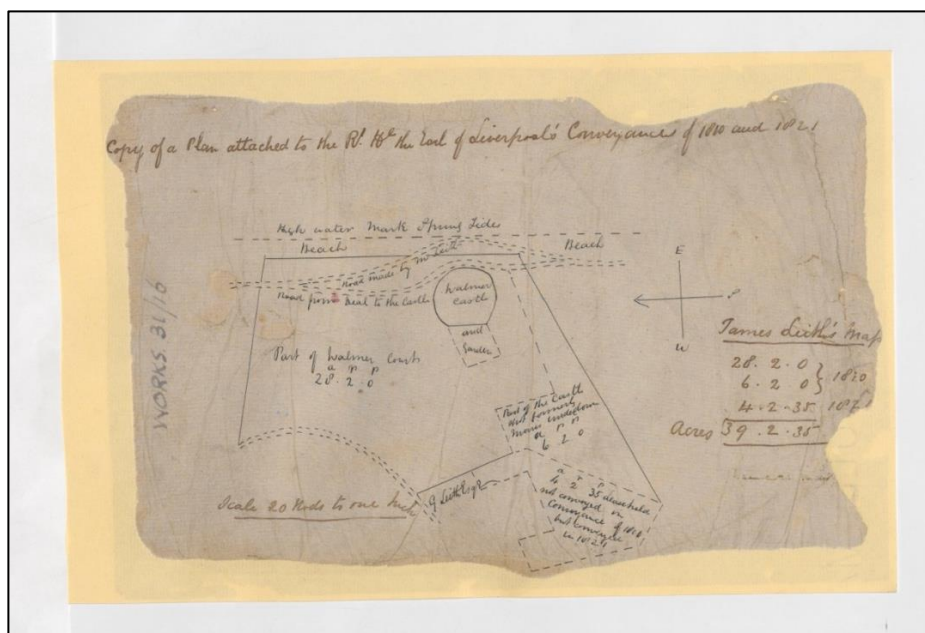 Copy of a Plan attached to the Rt. Hble the Earl of Liverpool's Conveyance of 1810 and 1821
High water Mark Spring Tides
Beach
Beach
Road made by Mr Leith
Road from Deal to the Castle
Walmer
Castle
and
Garden
Part of Walmer Court
a r p
28. 2. 0
Part of the Castle
a r p
6 2 0
G Leith Esqr
a r p
4 2 35
not conveyed in
Conveyance of 1810
but conveyed
in 1821
Scale 20 Rods to one Inch
E
W
James Leith's Map
28. 2. 0
6. 2 0 } 1810
4. 2. 35 1821
Acres 39. 2. 35
WORKS 31/16